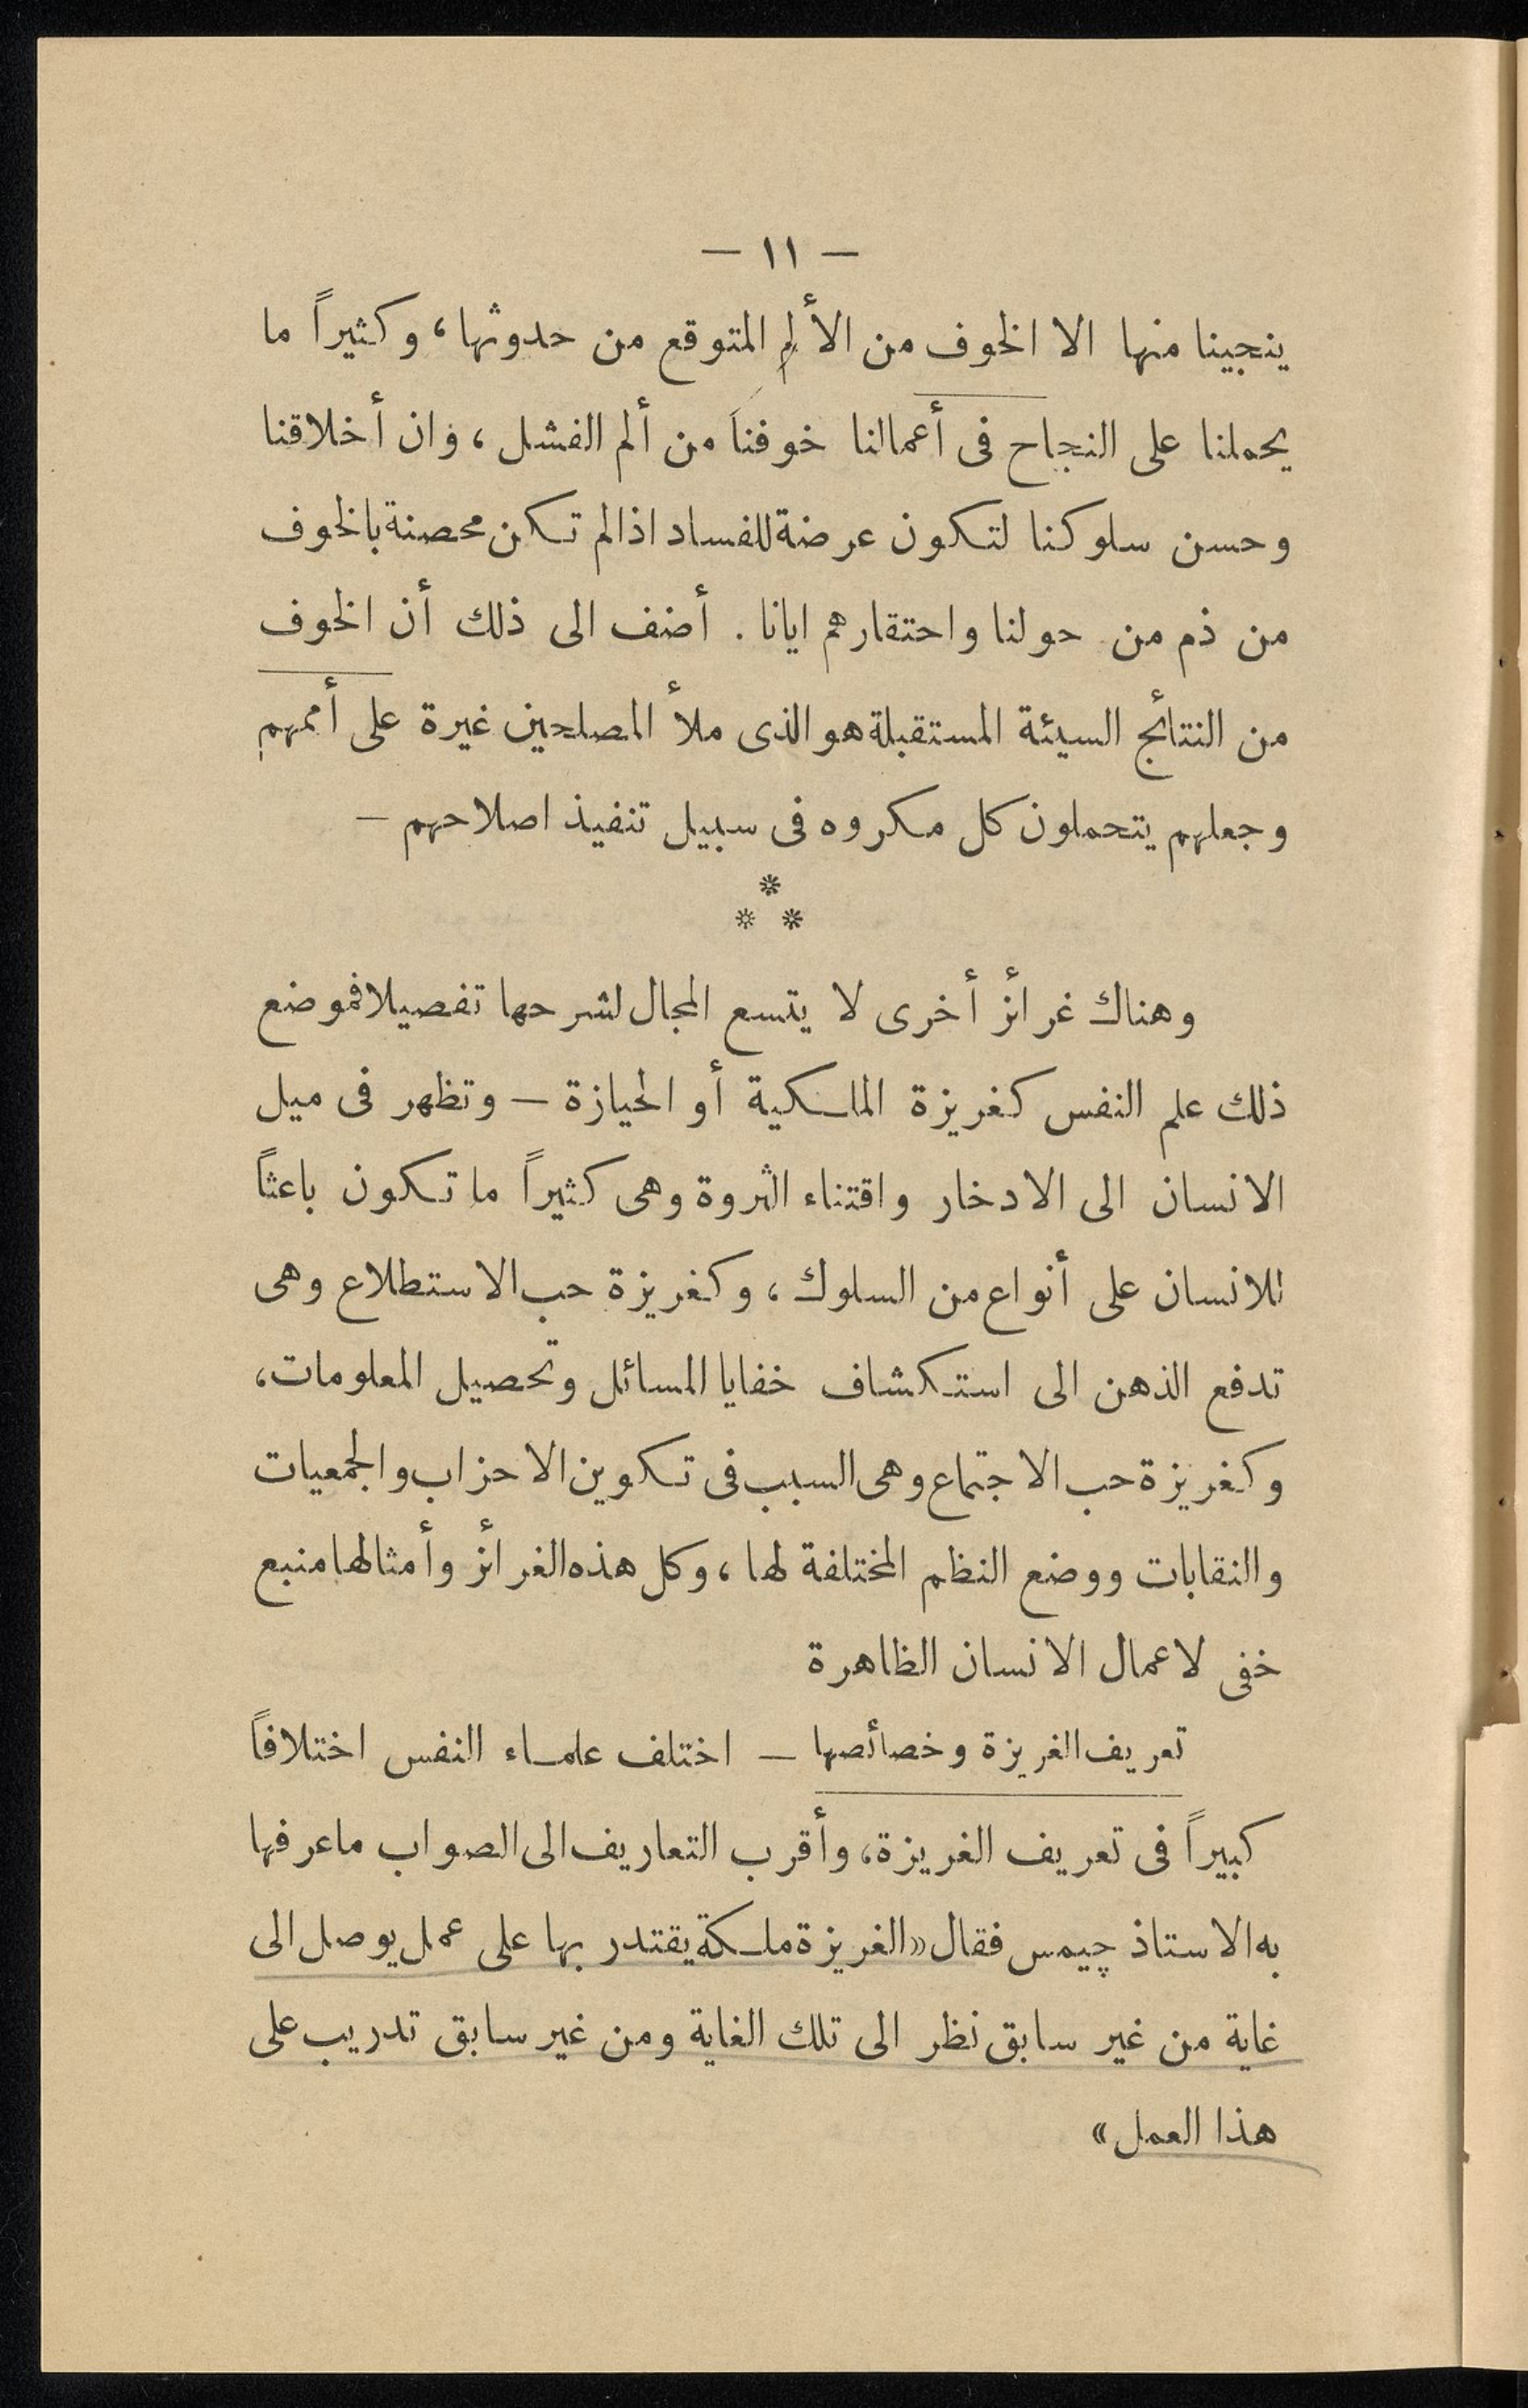 — ١١ —
ينجينا منها الا الخوف من الألم المتوقع من حدوثها، وكثيراً ما
يحملنا على النجاح فى أعمالنا خوفنا من ألم الفشل، وان أخلاقنا
وحسن سلوكنا لتكون عرضة للفساد اذا لم تكن محصنة بالخوف
من ذم من حولنا واحتقارهم ايانا. أضف الى ذلك أن الخوف
من النتائج السيئة المستقبلة هو الذى ملأ المصلحين غيرة على أممهم
وجعلهم يتحملون كل مكروه فى سبيل تنفيذ اصلاحهم —
*
* *
وهناك غرائز أخرى لا يتسع المجال لشرحها تفصيلا فموضع
ذلك علم النفس كغريزة الملكية أو الحيازة — وتظهر فى ميل
الانسان الى الادخار واقتناء الثروة وهى كثيراً ما تكون باعثاً
للانسان على أنواع من السلوك، وكغريزة حب الاستطلاع وهى
تدفع الذهن الى استكشاف خفايا المسائل وتحصيل المعلومات،
وكغريزة حب الاجتماع وهى السبب فى تكوين الاحزاب والجمعيات
والنقابات ووضع النظم المختلفة لها، وكل هذه الغرائز وأمثالها منبع
خفى لاعمال الانسان الظاهرة
تعريف الغريزة وخصائصها — اختلف علماء النفس اختلافاً
كبيراً فى تعريف الغريزة، وأقرب التعاريف الى الصواب ما عرفها
به الاستاذ چيمس فقال «الغريزة ملكة يقتدر بها على عمل يوصل الى
غاية من غير سابق نظر الى تلك الغاية ومن غير سابق تدريب على
هذا العمل»